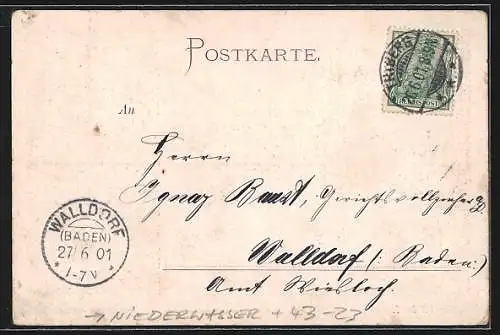 POSTKARTE.
TRIBERG
6.01
REICHSPOST
An
Herrn
Ignaz Baust, Gerichtsvollzieher
Walldorf (: Baden:)
Amt Wiesloch.
WALLDORF
(BADEN)
27/6 01
* 1-7V *
→ NIEDERWASSER + 43-23